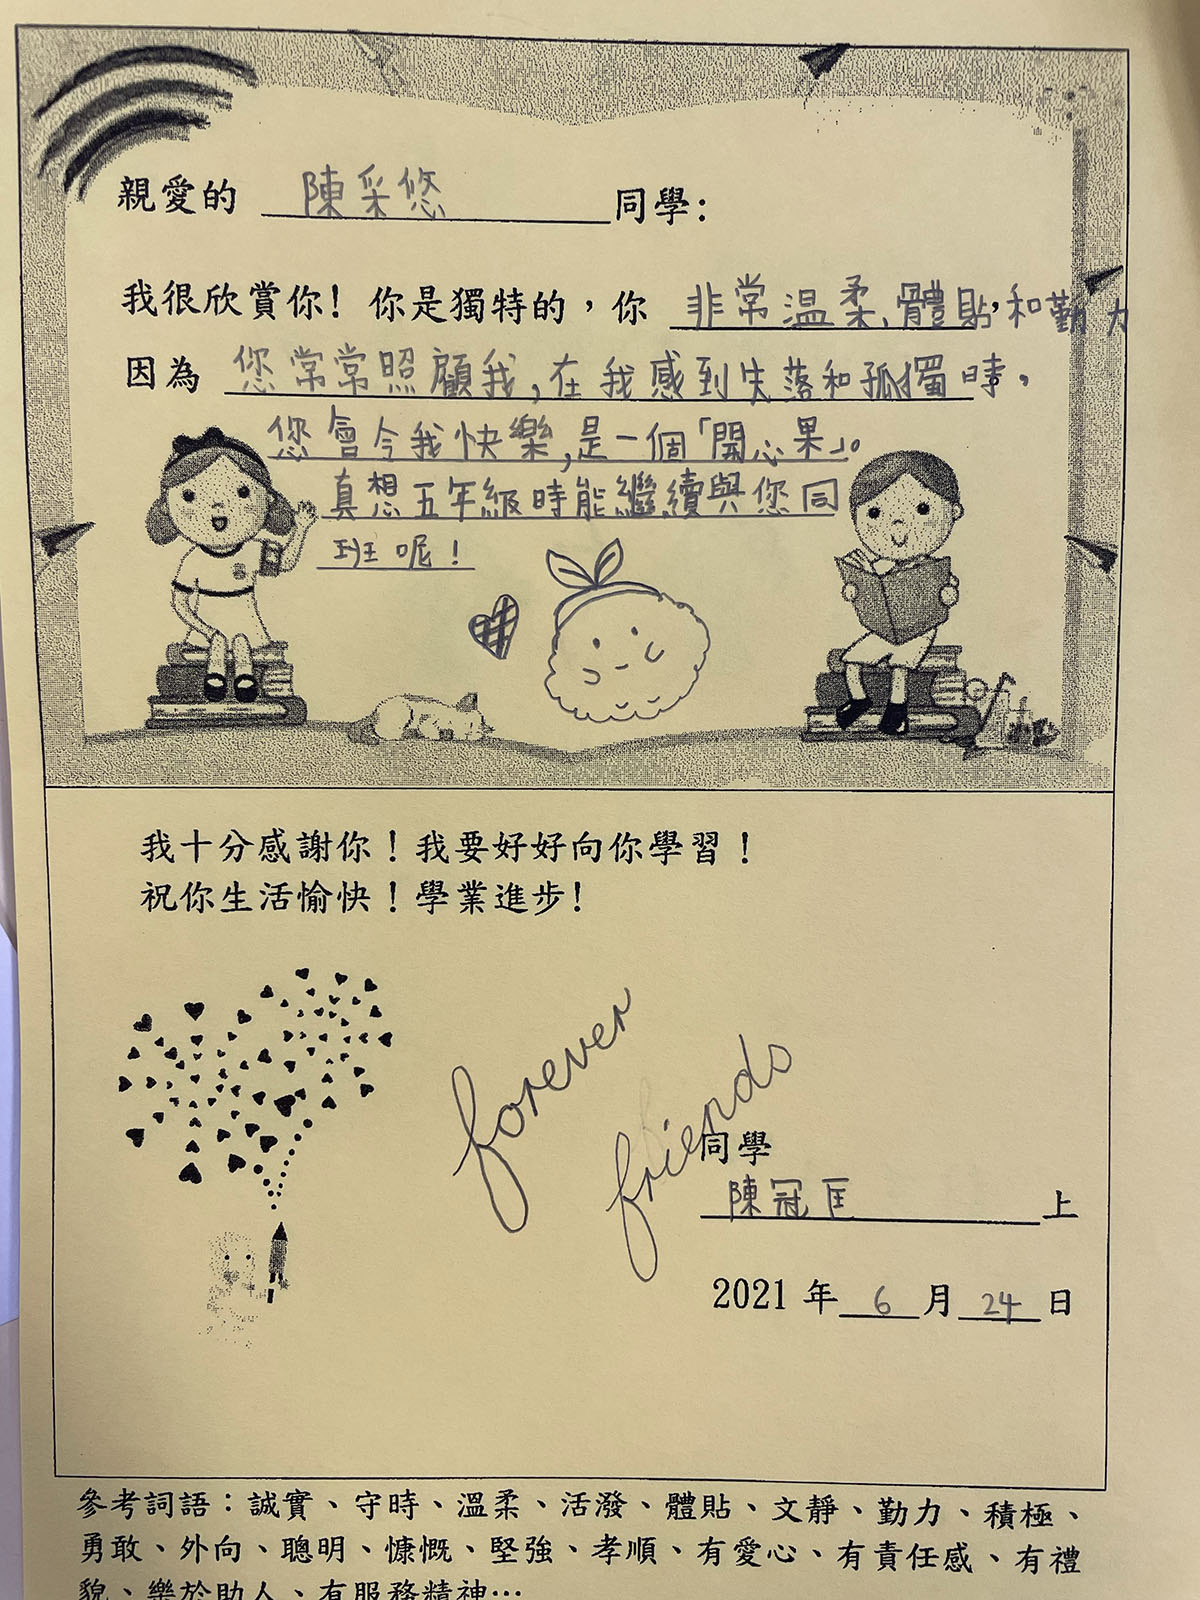 親愛的 陳采悠 同學:
我很欣賞你! 你是獨特的，你 非常温柔、體貼，和勤力
因為 您常常照顧我，在我感到失落和孤獨時，
您會令我快樂，是一個「開心果」。
真想五年級時能繼續與您同
班呢！
我十分感謝你！我要好好向你學習！
祝你生活愉快！學業進步!
forever
friends
同學
陳冠匡 上
2021 年 6 月 24 日
參考詞語：誠實、守時、溫柔、活潑、體貼、文靜、勤力、積極、
勇敢、外向、聰明、慷慨、堅強、孝順、有愛心、有責任感、有禮
貌、樂於助人、有服務精神…